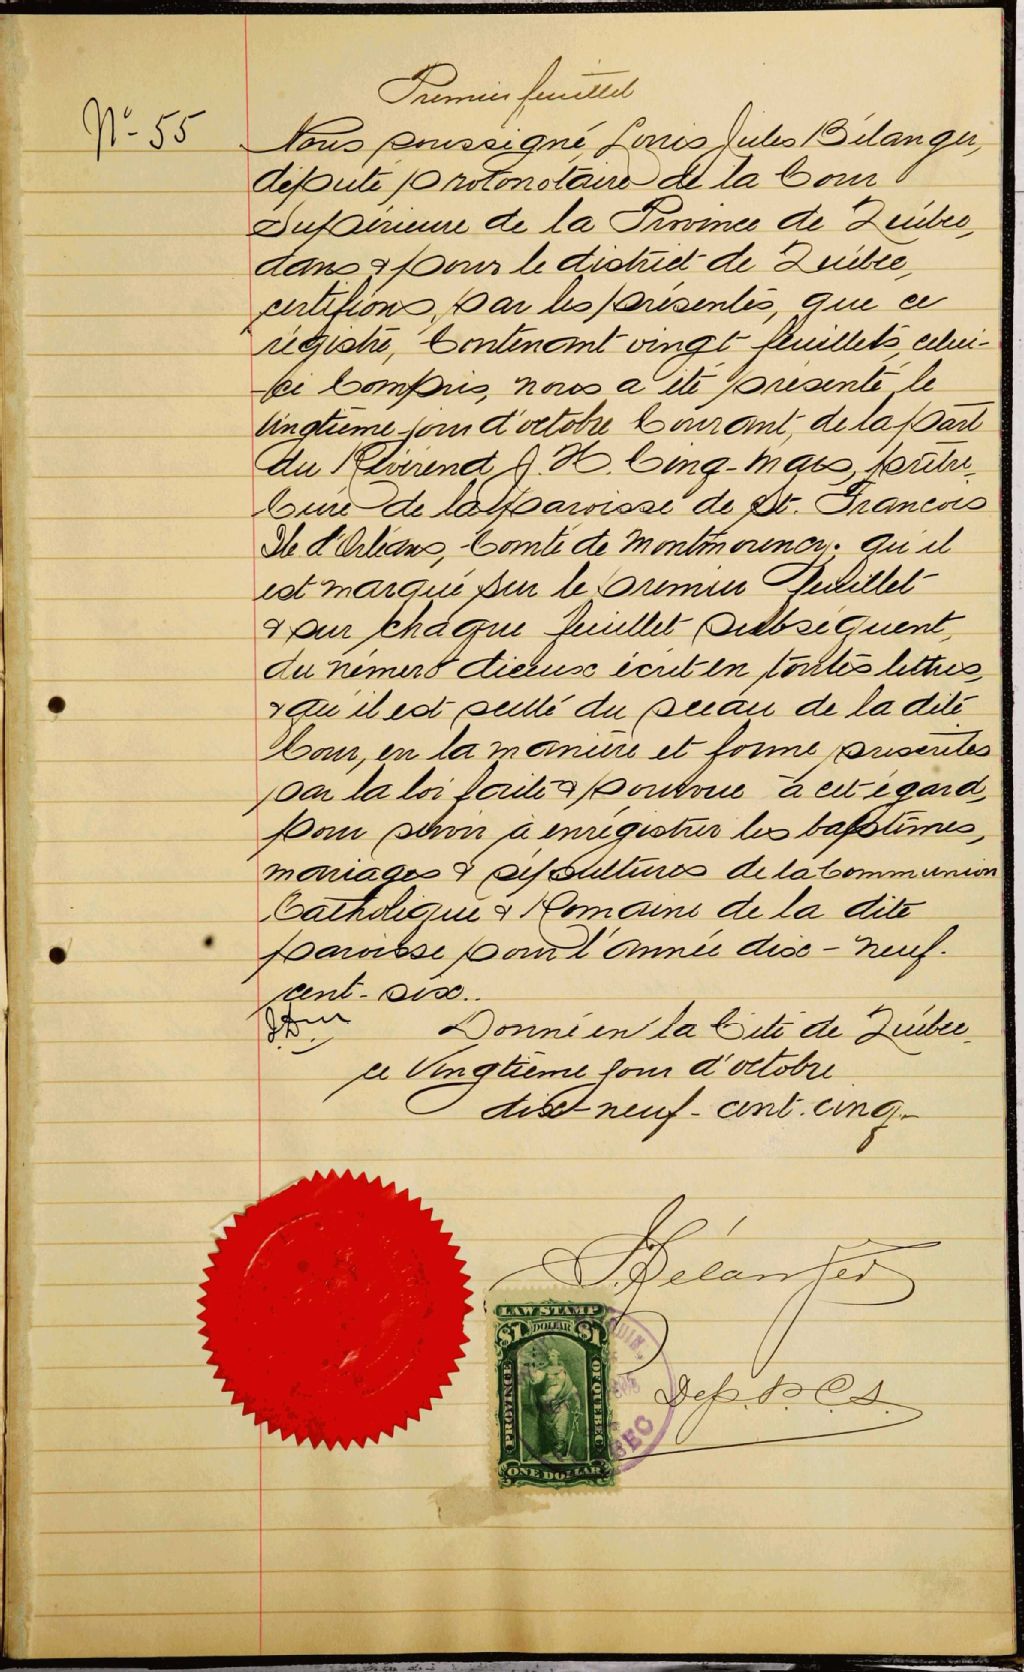 Premier feuillet
No 55
Nous soussigné, Louis Jules Bélanger,
député protonotaire de la Cour
Supérieure de la Province de Québec,
dans & pour le district de Québec,
certifions, par les présentés, que ce
régistre, Contenant vingt feuillets, celui-
-ci Compris, nous a été présenté, le
vingtième jour d'octobre Courant, de la part
du Révérend J. H. Cinq-Mars, prêtre,
Curé de la paroisse de St. Francois
Ile d'Orléans, Comté de Montmorency. qu'il
est marqué sur le premier feuillet
& sur chaque feuillet subséquent,
du némero écrit en toutes lettres,
& qu'il est scellé du sceau de la dite
Cour, en la manière et forme prescrites
par la loi faite & pourvue à cet égard,
pour servir à enrégistrer les baptêmes,
mariages & sépultures de la Communion
Catholique & Romaine de la dite
paroisse pour l'année dix-neuf-
cent-six..
Donné en la Cité de Québec,
ce Vingtième jour d'octobre
dix-neuf-cent-cinq.
Bélanger
LAW STAMP
$1 DOLLAR $1
PROVINCE OF QUEBEC
ONE DOLLAR
Dep. P. C. S.